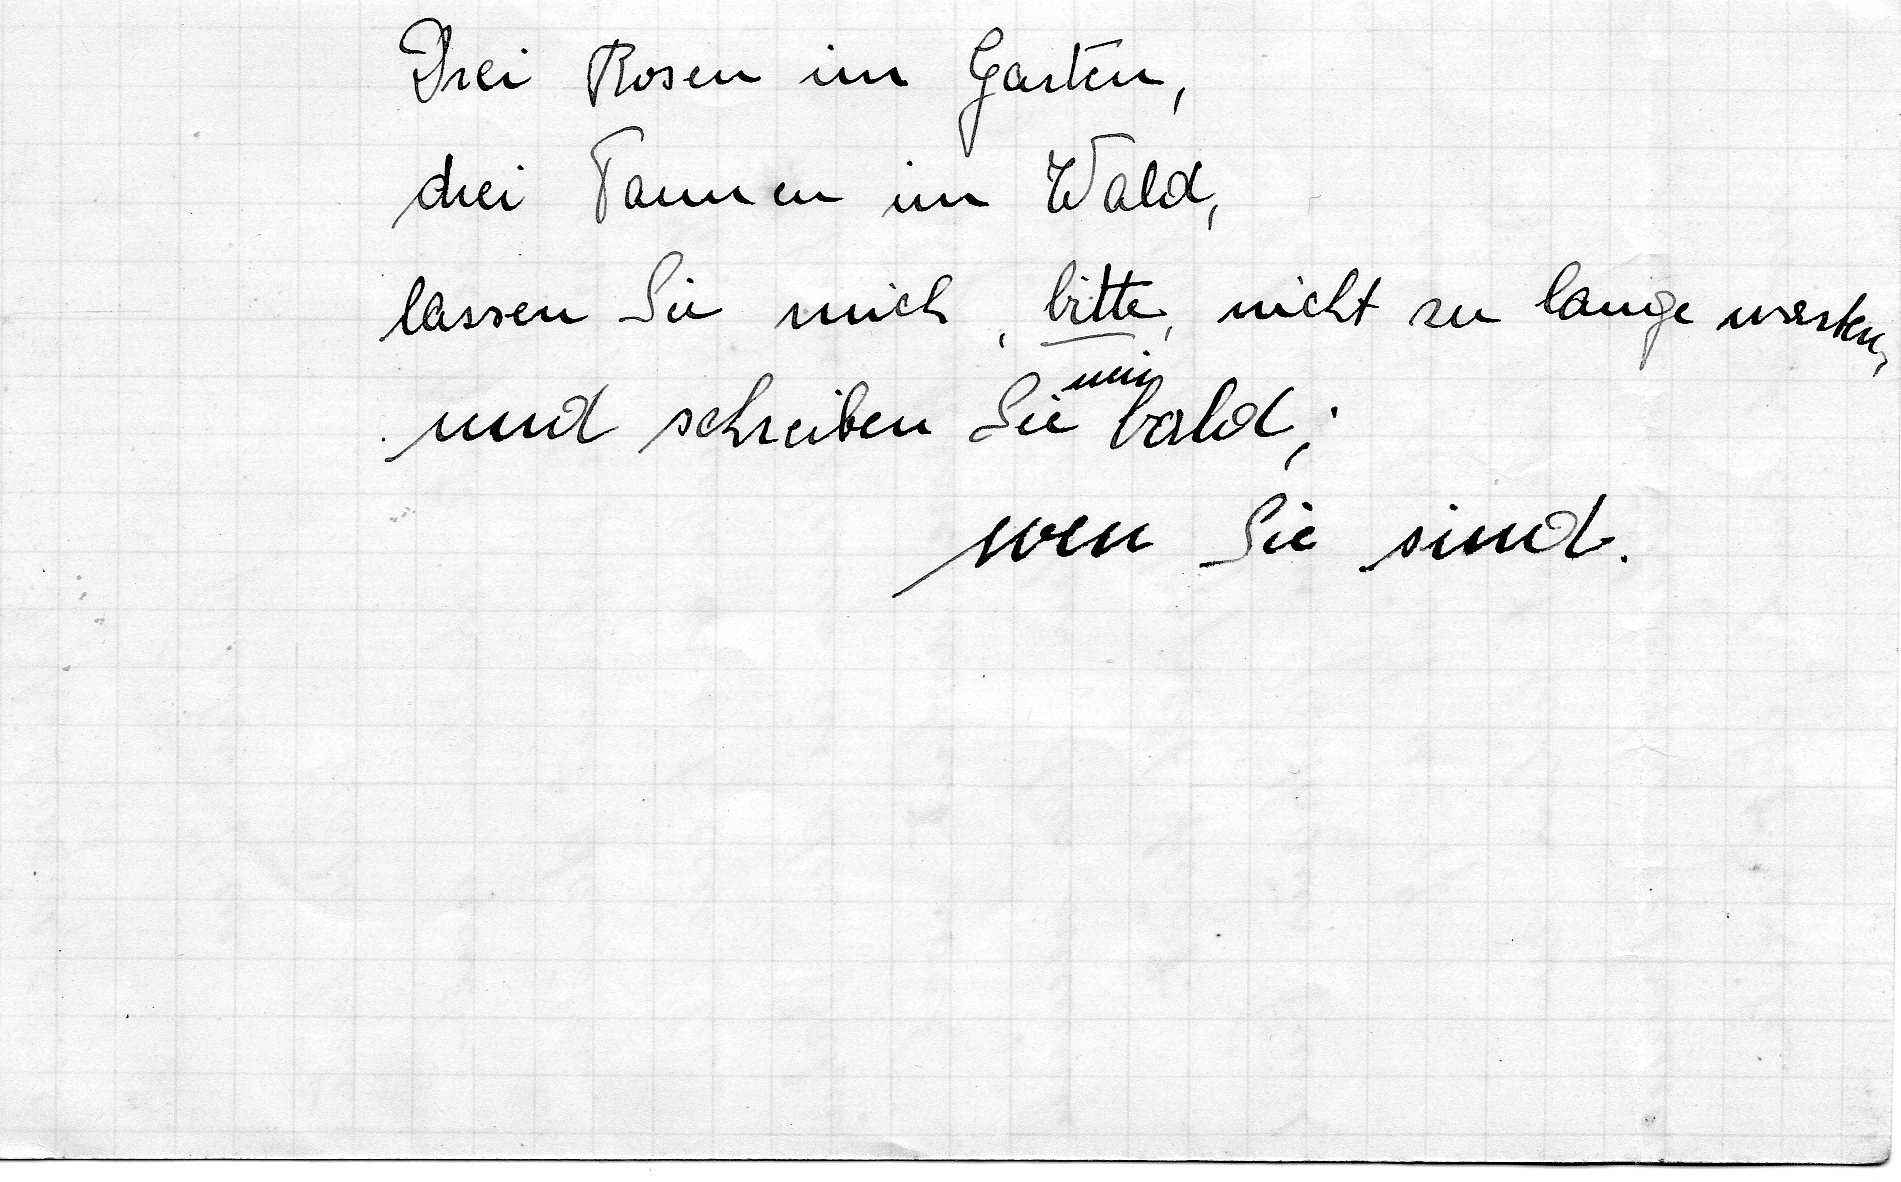 Drei Rosen im Garten,
drei Tannen im Wald,
lassen Sie mich, bitte, nicht zu lange warten,
und schreiben Sie mir bald,
wer Sie sind.